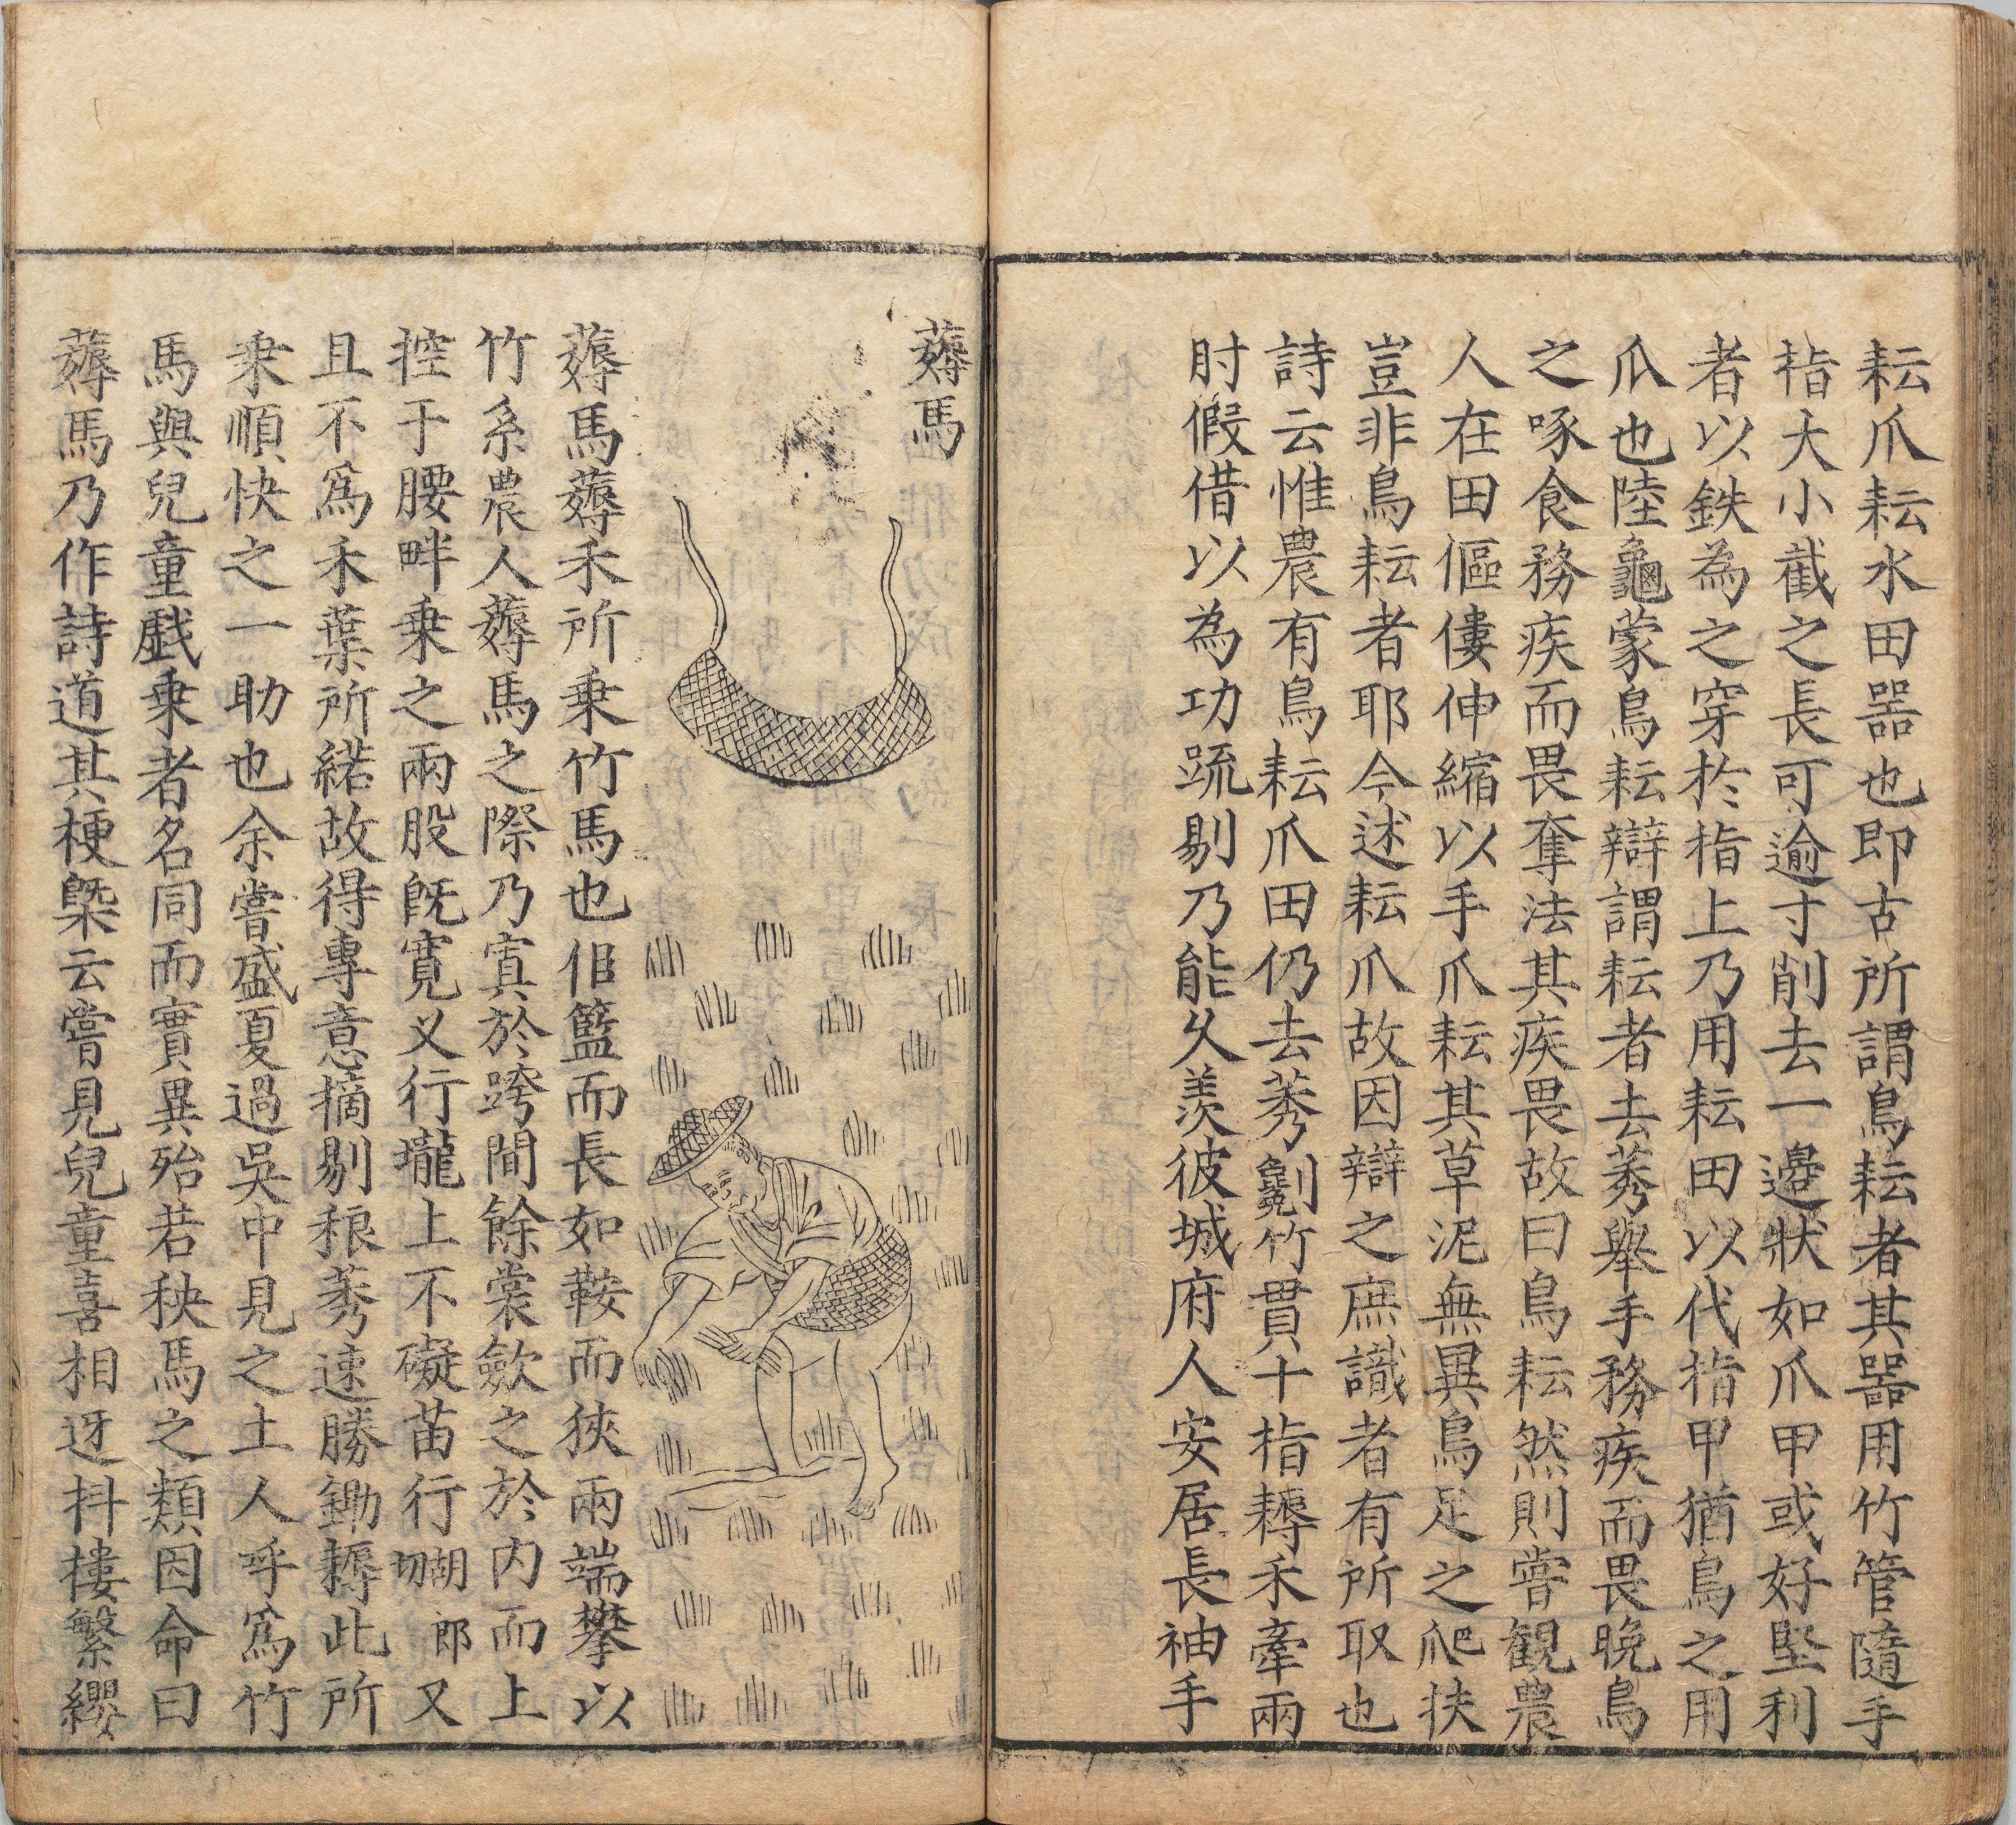 耘爪耘水田器也即古所謂鳥耘者其器用竹管隨手
指大小截之長可逾寸削去一邊狀如爪甲或好堅利
者以鉄為之穿於指上乃用耘田以代指甲猶鳥之用
爪也陸龜蒙鳥耘辯謂耘者去莠舉手務疾而畏晚鳥
之啄食務疾而畏奪法其疾畏故曰鳥耘然則嘗観農
人在田傴僂伸縮以手爪耘其草泥無異鳥足之爬抉
豈非鳥耘者耶今述耘爪故因辯之庶識者有所取也
詩云惟農有鳥耘爪田仍去莠劖竹貫十指耨禾牽兩
肘假借以為功䟽剔乃能久羨彼城府人安居長袖手
薅馬
薅馬薅禾所乗竹馬也佀籃而長如鞍而狹兩端攀以
竹系農人薅馬之際乃寘於跨間餘裳歛之於内而上
控于腰畔乗之兩股既寛又行壠上不礙苗行胡郎切又
且不爲禾葉所緒故得專意摘剔稂莠速勝鋤耨此所
乗順快之一助也余嘗盛夏過吳中見之土人呼爲竹
馬與兒童戯乗者名同而實異殆若秧馬之類因命曰
薅馬乃作詩道其梗槩云嘗見兒童喜相迓抖摟繁纓